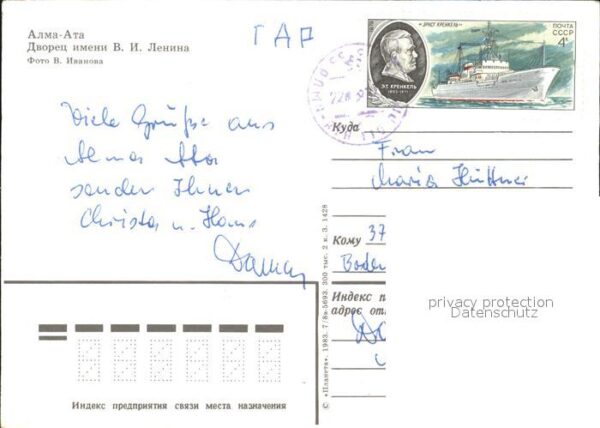 Алма-Ата
Дворец имени В. И. Ленина
Фото В. Иванова
ГДР
"ЭРНСТ КРЕНКЕЛЬ"
ПОЧТА
СССР
4к
Э.Т. КРЕНКЕЛЬ
1903-1971
Viele Grüße aus
Alma Ata
senden Ihnen
Christa u. Hans
Куда
Frau
Maria Hüttner
Кому 37
Boden
Индекс п
адрес от
privacy protection
Datenschutz
Индекс предприятия связи места назначения
© «Планета». 1983. 7/8в-5693. 300 тыс. 2 к. З. 1428